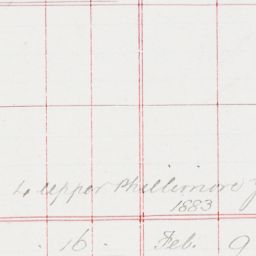 Upper Phillimore
1883
16. Feb. 9